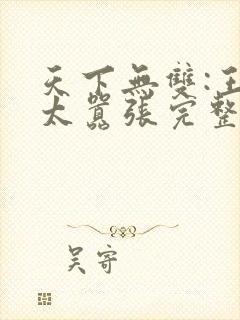 天下無雙:王
太囂張完整
吳寄